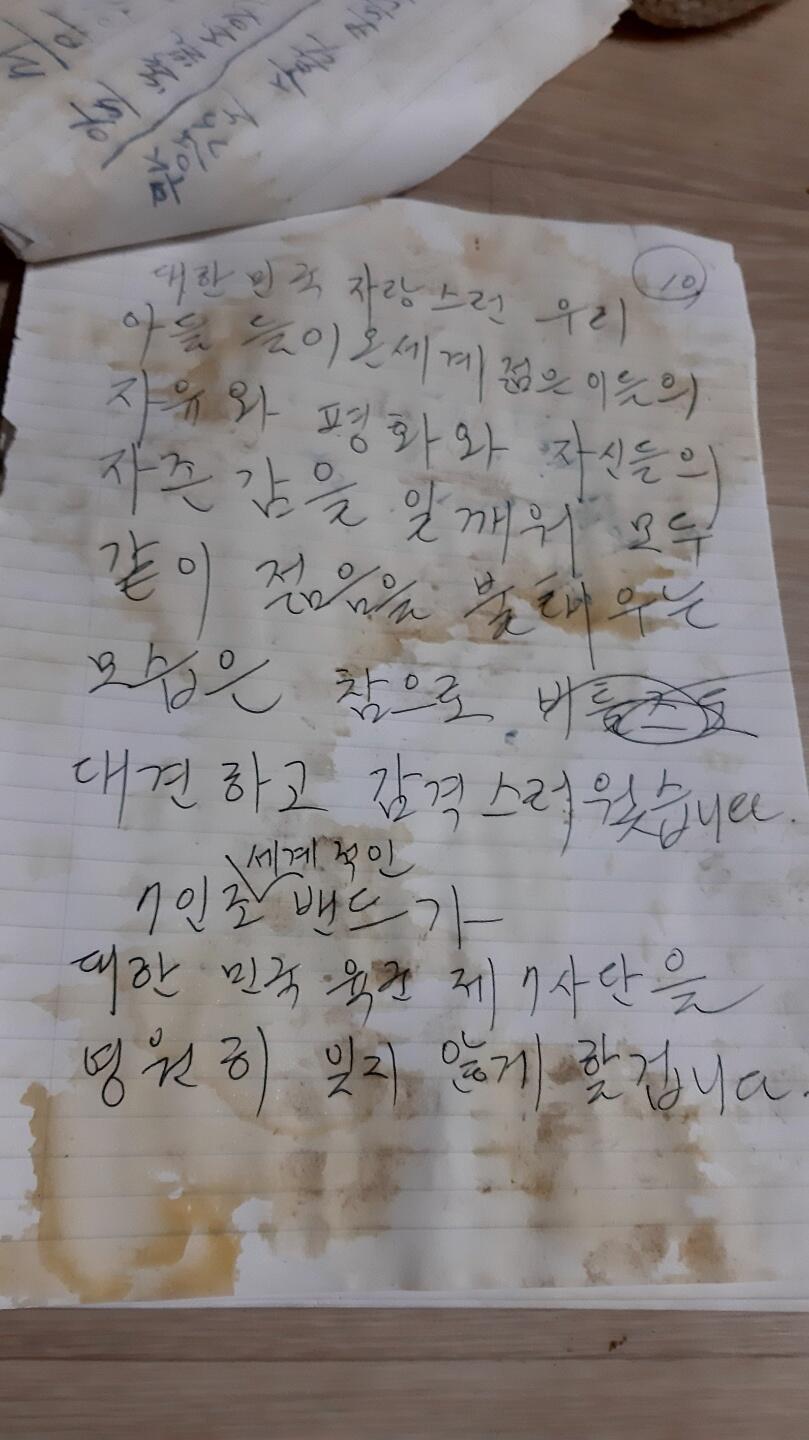 10
대한민국 자랑스런 우리
아들 들이 온세계 젊은이들의
자유와 평화와 자신들의
자존감을 일깨워 모두
같이 젊음을 불태우는
모습은 참으로
대견하고 감격스러웠습니다.
세계적인
7인조 밴드가
대한민국 육군 제7사단을
영원히 잊지 않게 할겁니다.